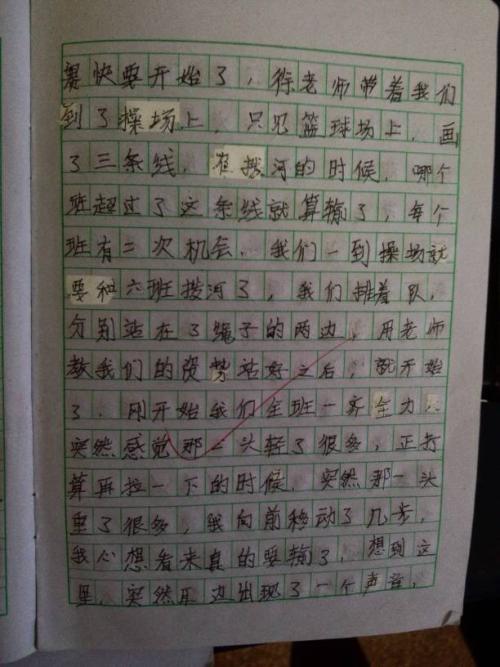 赛快要开始了，徐老师带着我们
到了操场上，只见篮球场上，画
了三条线，在拔河的时候，哪个
班超过了这条线就算输了，每个
班有二次机会，我们一到操场就
要和六班拨河了，我们排着队，
分别站在了绳子的两边，用老师
教我们的资势站好之后，就开始
了，刚开始我们全班一齐全力
突然感觉那一头轻了很多，正打
算再拉一下的时候，突然那一头
重了很多，我向前移动了几步，
我心想看来真的要输了，想到这
里，突然耳边出现了一个声音，